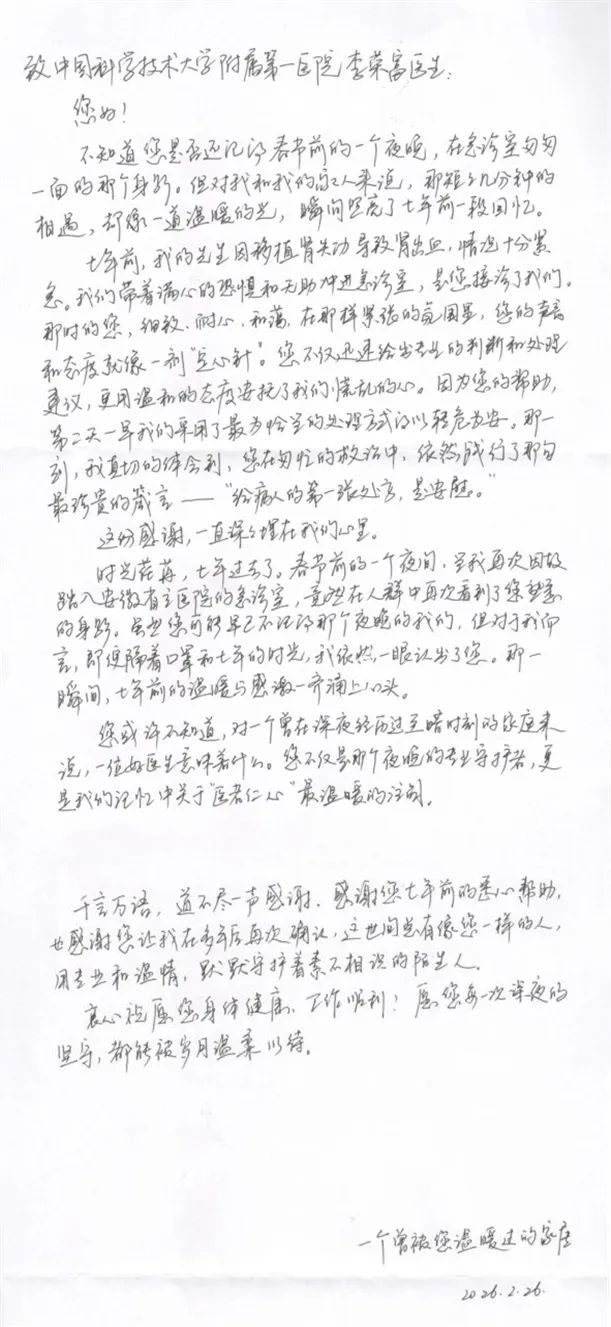 致中国科学技术大学附属第一医院李荣富医生：
您好！
不知道您是否还记得春节前的一个夜晚，在急诊室匆匆
一面的那个身影。但对我和我的家人来说，那短短几分钟的
相遇，却像一道温暖的光，瞬间照亮了七年前一段回忆。
七年前，我的先生因移植肾失功导致肾出血，情况十分紧
急。我们带着满心的恐惧和无助冲进急诊室，是您接诊了我们。
那时的您，细致、耐心、和蔼，在那样紧张的氛围里，您的声音
和态度就像一剂“定心针”。您不仅迅速给出专业的判断和处理
建议，更用温和的态度安抚了我们慌乱的心。因为您的帮助，
第二天一早我们采用了最为恰当的处理方式得以转危为安。那一
刻，我真切的体会到，您在匆忙的救治中，依然践行了那句
最珍贵的箴言——“给病人的第一张处方，是安慰。”
这份感谢，一直深深埋在我的心里。
时光荏苒，七年过去了。春节前的一个夜间，当我再次因故
踏入安徽省立医院的急诊室，竟然在人群中再次看到了您熟悉
的身影。虽然您可能早已不记得那个夜晚的我们，但对于我而
言，即使隔着口罩和七年的时光，我依然一眼认出了您。那一
瞬间，七年前的温暖与感激一齐涌上心头。
您或许不知道，对一个曾在深夜经历过至暗时刻的家庭来
说，一位好医生意味着什么。您不仅是那个夜晚的专业守护者，更
是我的记忆中关于“医者仁心”最温暖的注解。
千言万语，道不尽一声感谢。感谢您七年前的悉心帮助，
也感谢您让我在多年后再次确认，这世间总有像您一样的人，
用专业和温情，默默守护着素不相识的陌生人。
衷心祝愿您身体健康、工作顺利！愿您每一次深夜的
坚守，都能被岁月温柔以待。
一个曾被您温暖过的家庭
2026.2.26.